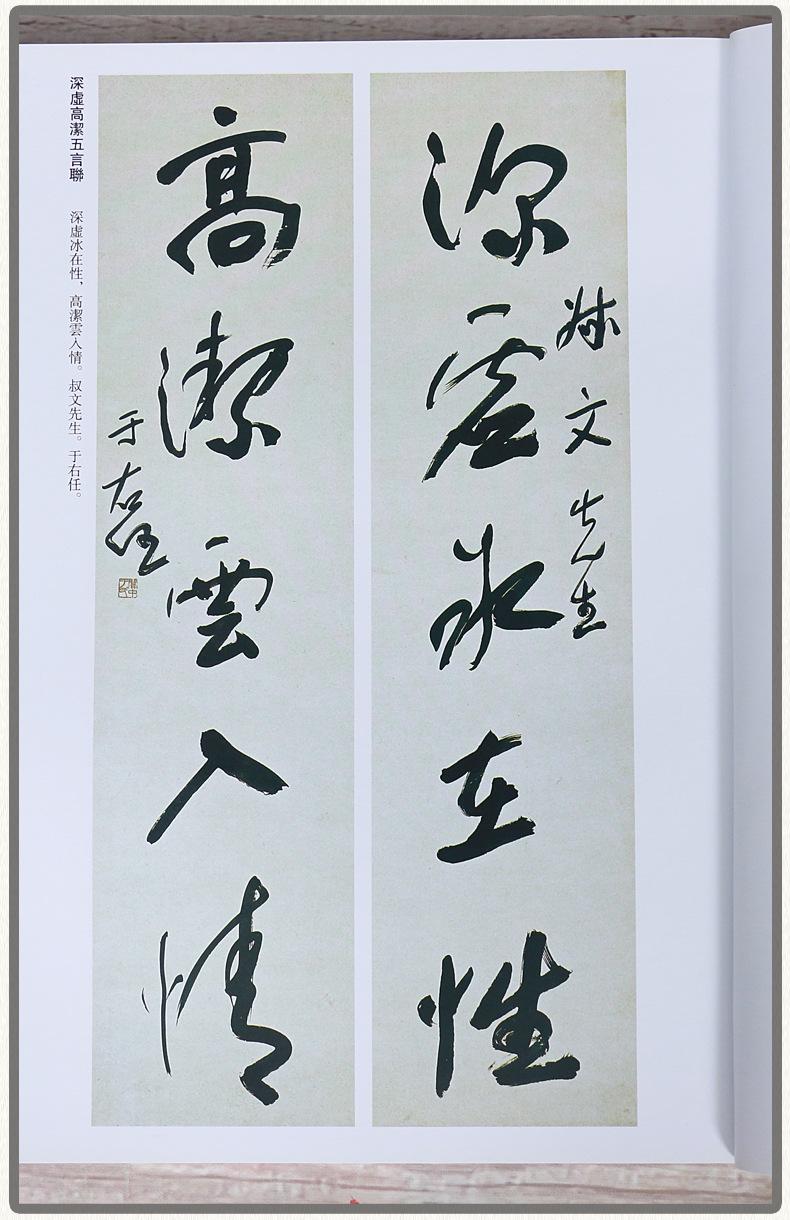 深虛冰在性
叔文先生
高潔雲入情
于右任
深虛高潔五言聯
深虛冰在性，高潔雲入情。叔文先生。于右任。